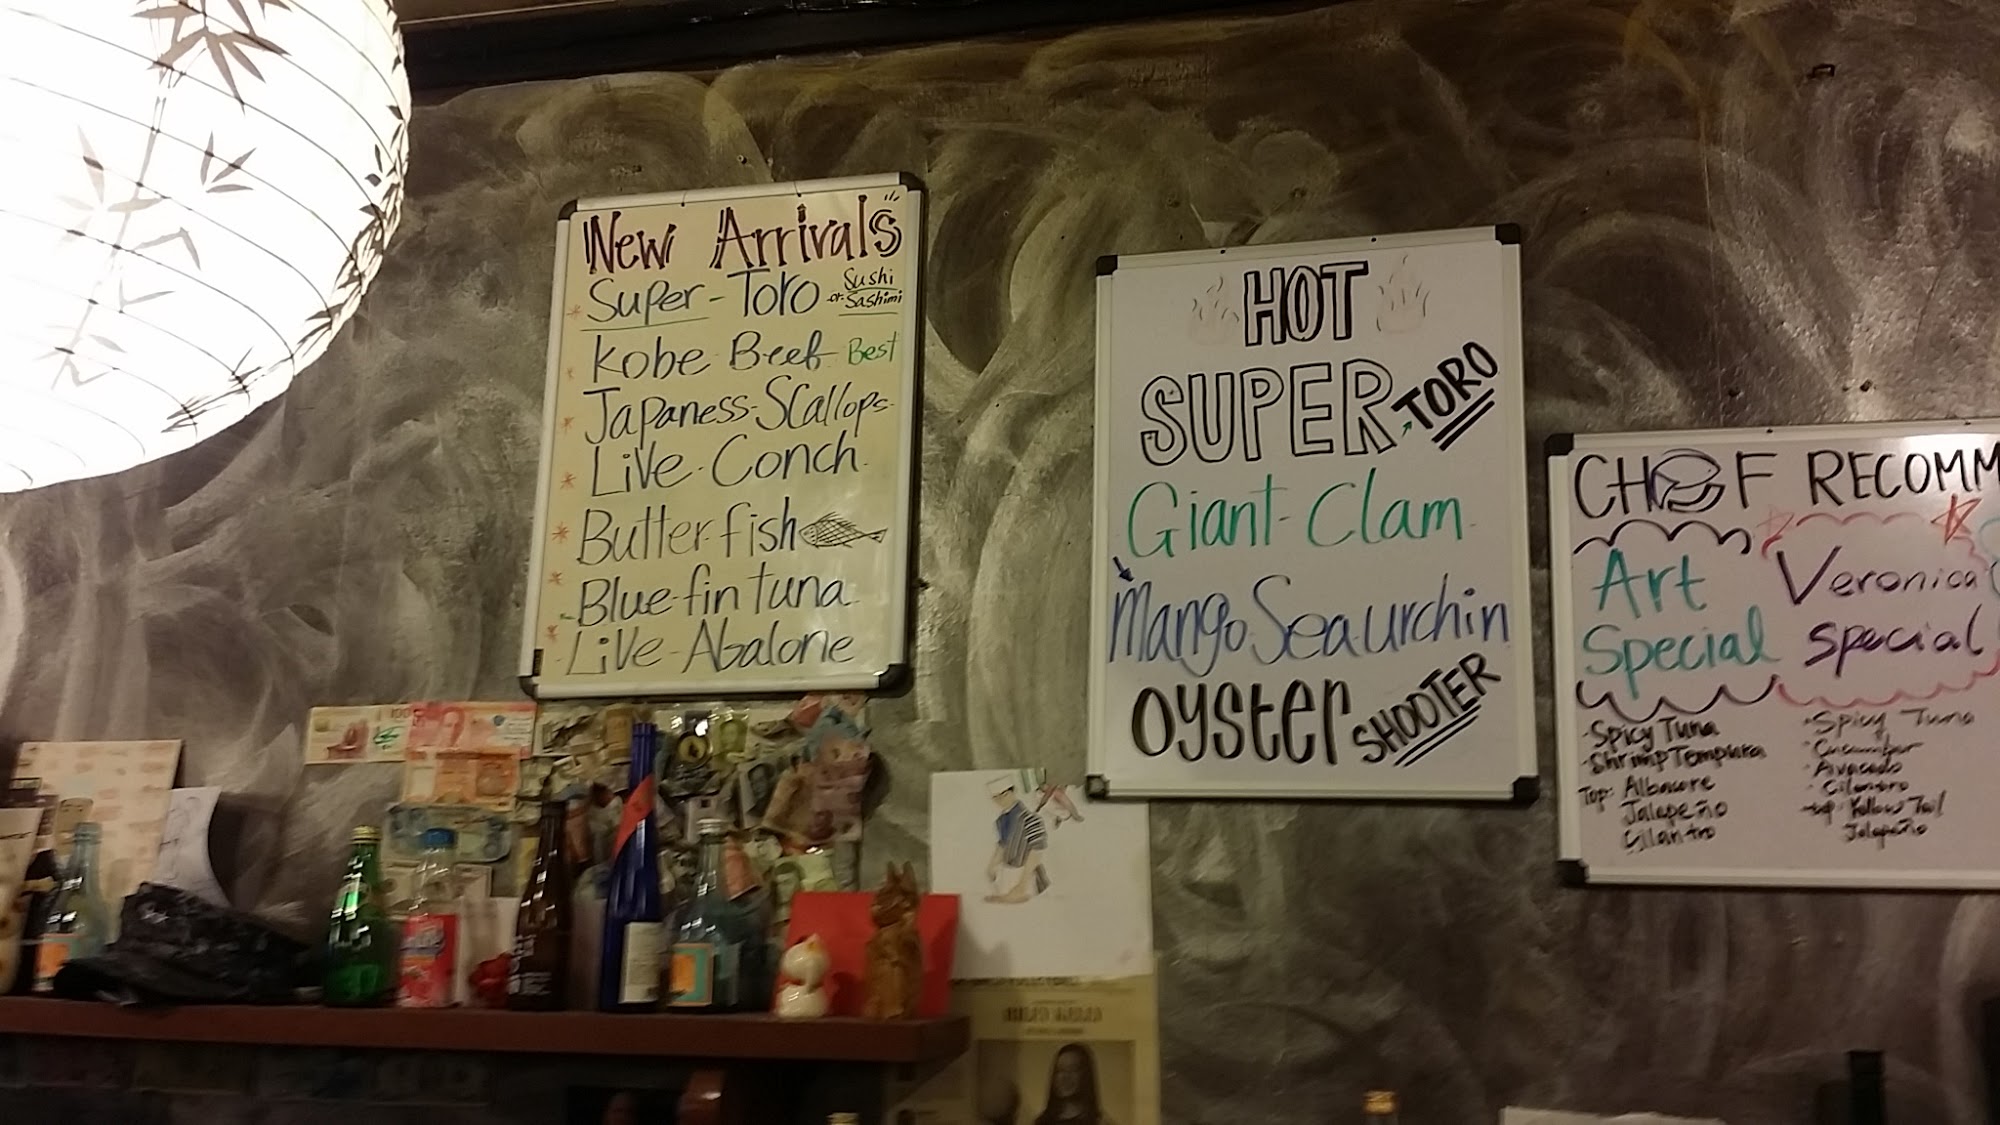 New Arrivals
Super-Toro Sushi or Sashimi
Kobe Beef Best
Japaness-Scallops
Live-Conch
Butterfish
Blue-fin tuna
Live-Abalone
HOT
SUPER TORO
Giant-Clam
Mango Sea urchin
Oyster SHOOTER
CHEF RECOMM
Art
Special
-Spicy Tuna
-Shrimp Tempura
Top: Albacore
Jalapeño
Cilantro
Veronica
Special
Spicy Tuna
Cucumber
Avocado
Cilantro
top: Yellow Tail
Jalapeño